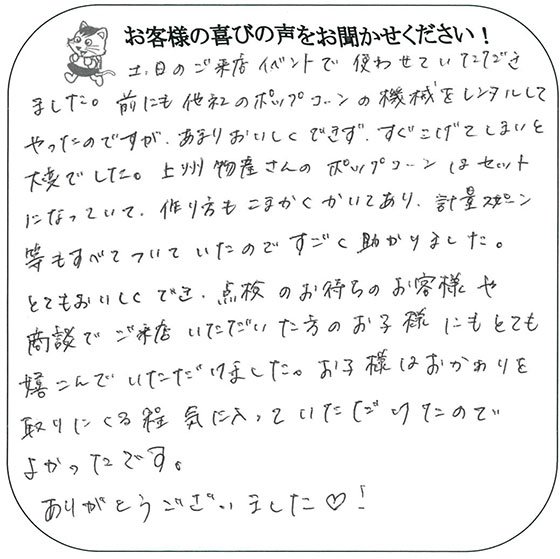 お客様の喜びの声をお聞かせください！
土、日のご来店イベントで使わせていただき
ました。前にも他社のポップコーンの機械をレンタルして
やったのですが、あまりおいしくできず、すぐこげてしまいと
大変でした。上州物産さんのポップコーンはセット
になっていて、作り方もこまかくかいてあり、計量スプーン
等もすべてついていたのですごく助かりました。
とてもおいしくでき、点検のお待ちのお客様や
商談でご来店いただいた方のお子様にもとても
嬉こんでいただけました。お子様はおかわりを
取りにくる程気に入っていただけたので
よかったです。
ありがとうございました♡！